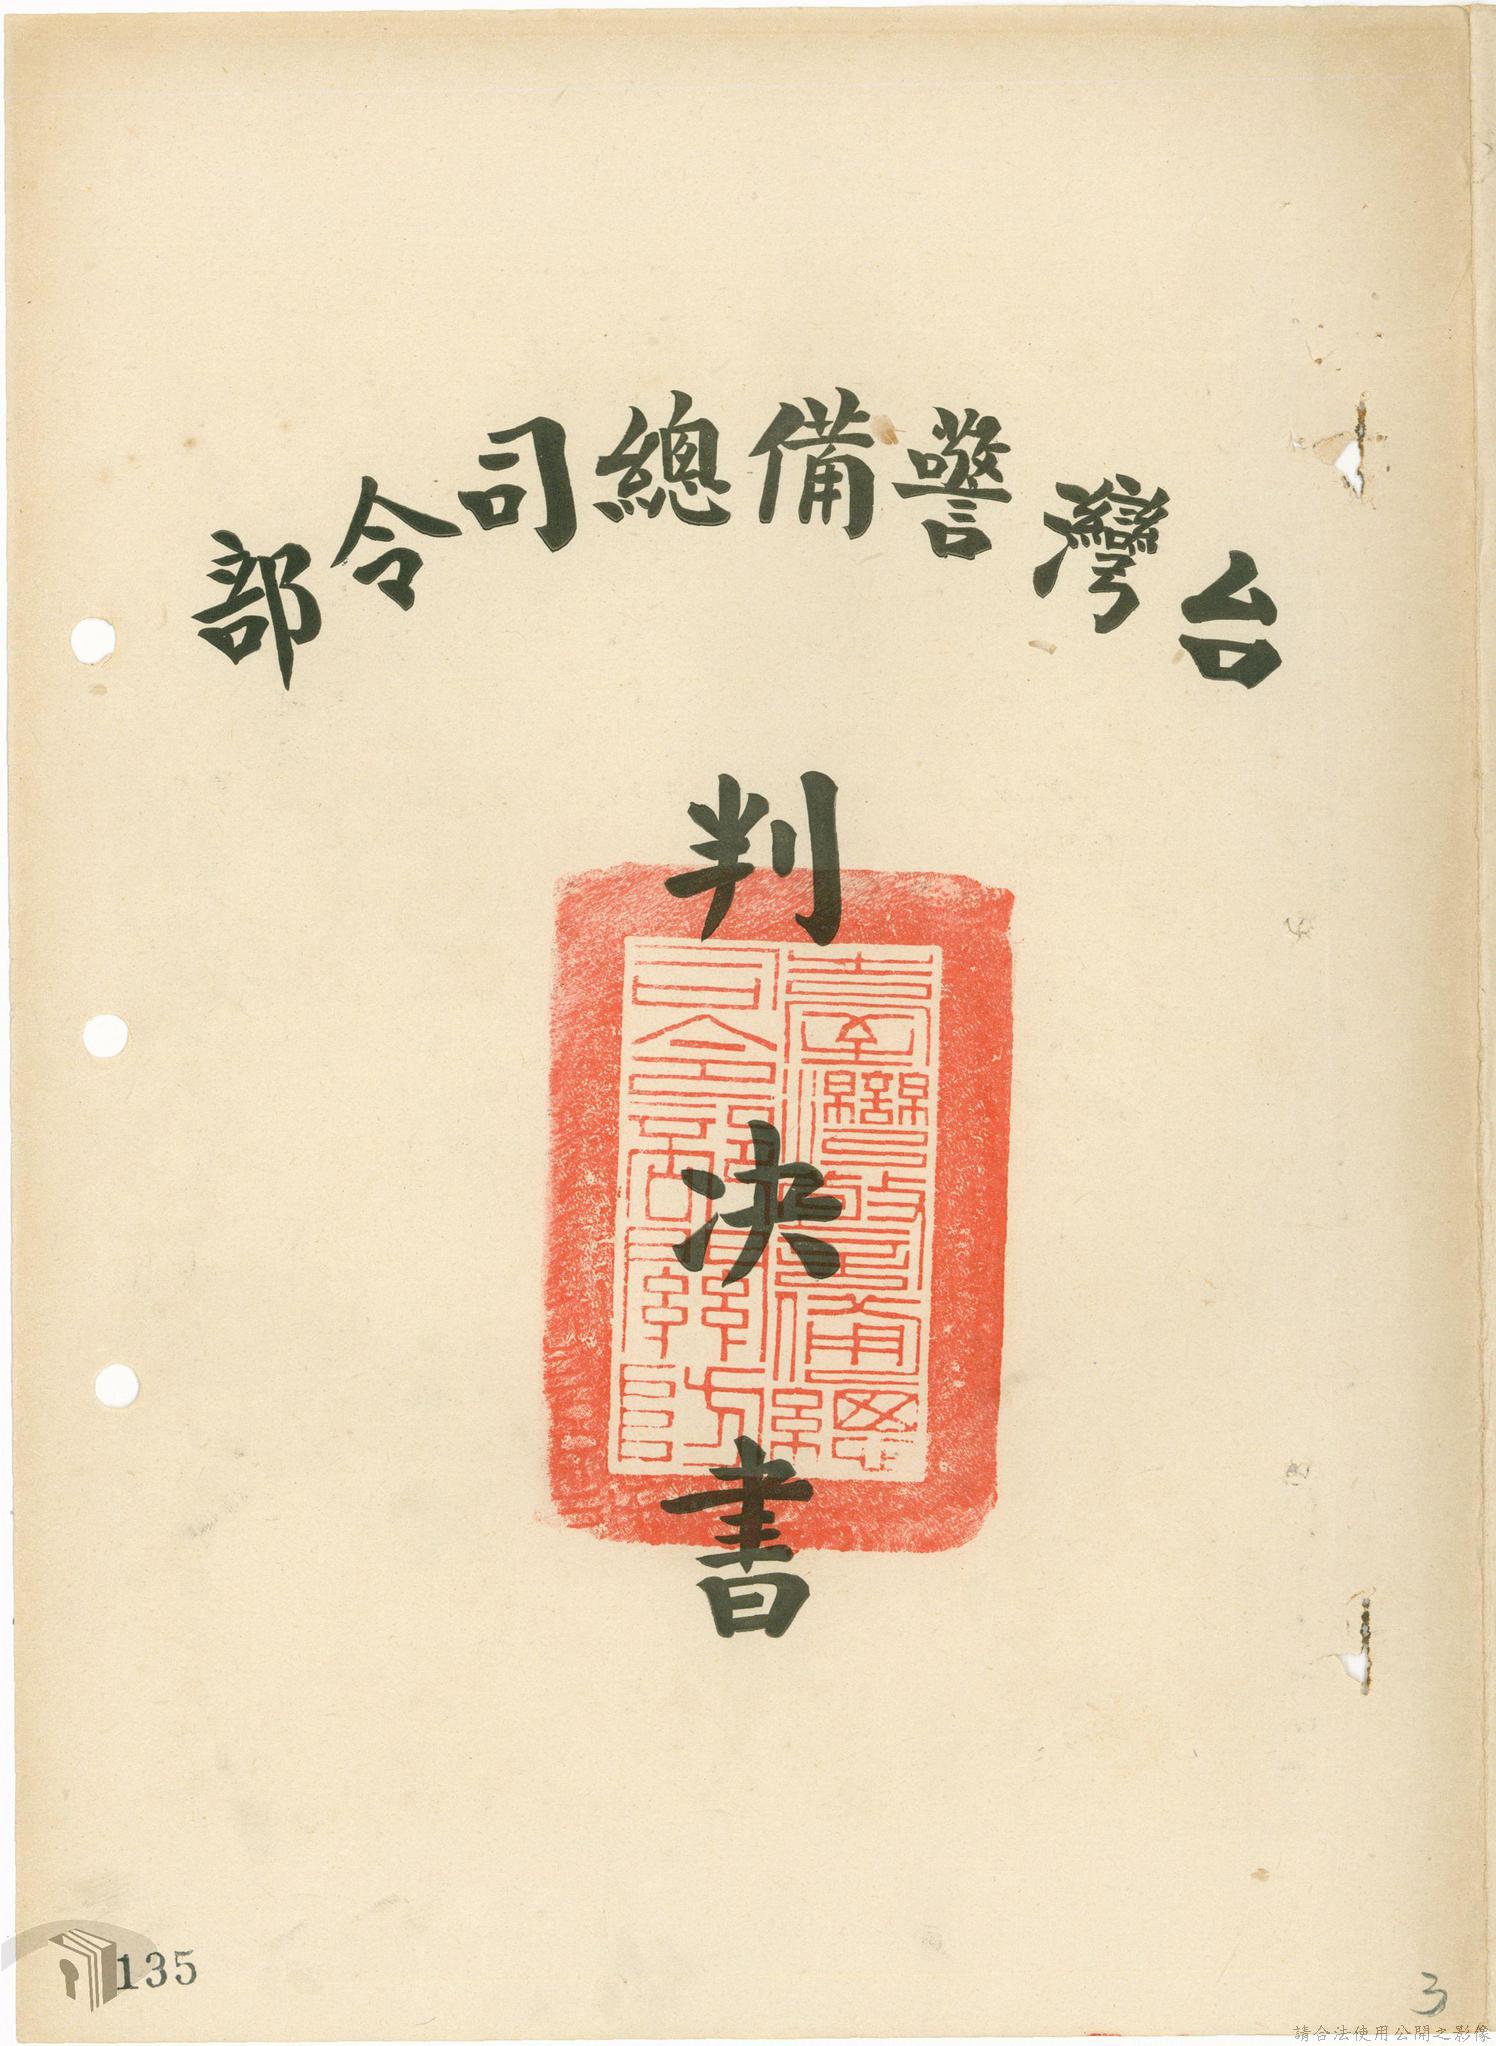 台灣警備總司令部
判決書
臺灣警備總
司令部關防
135
3
請合法使用公開之影像